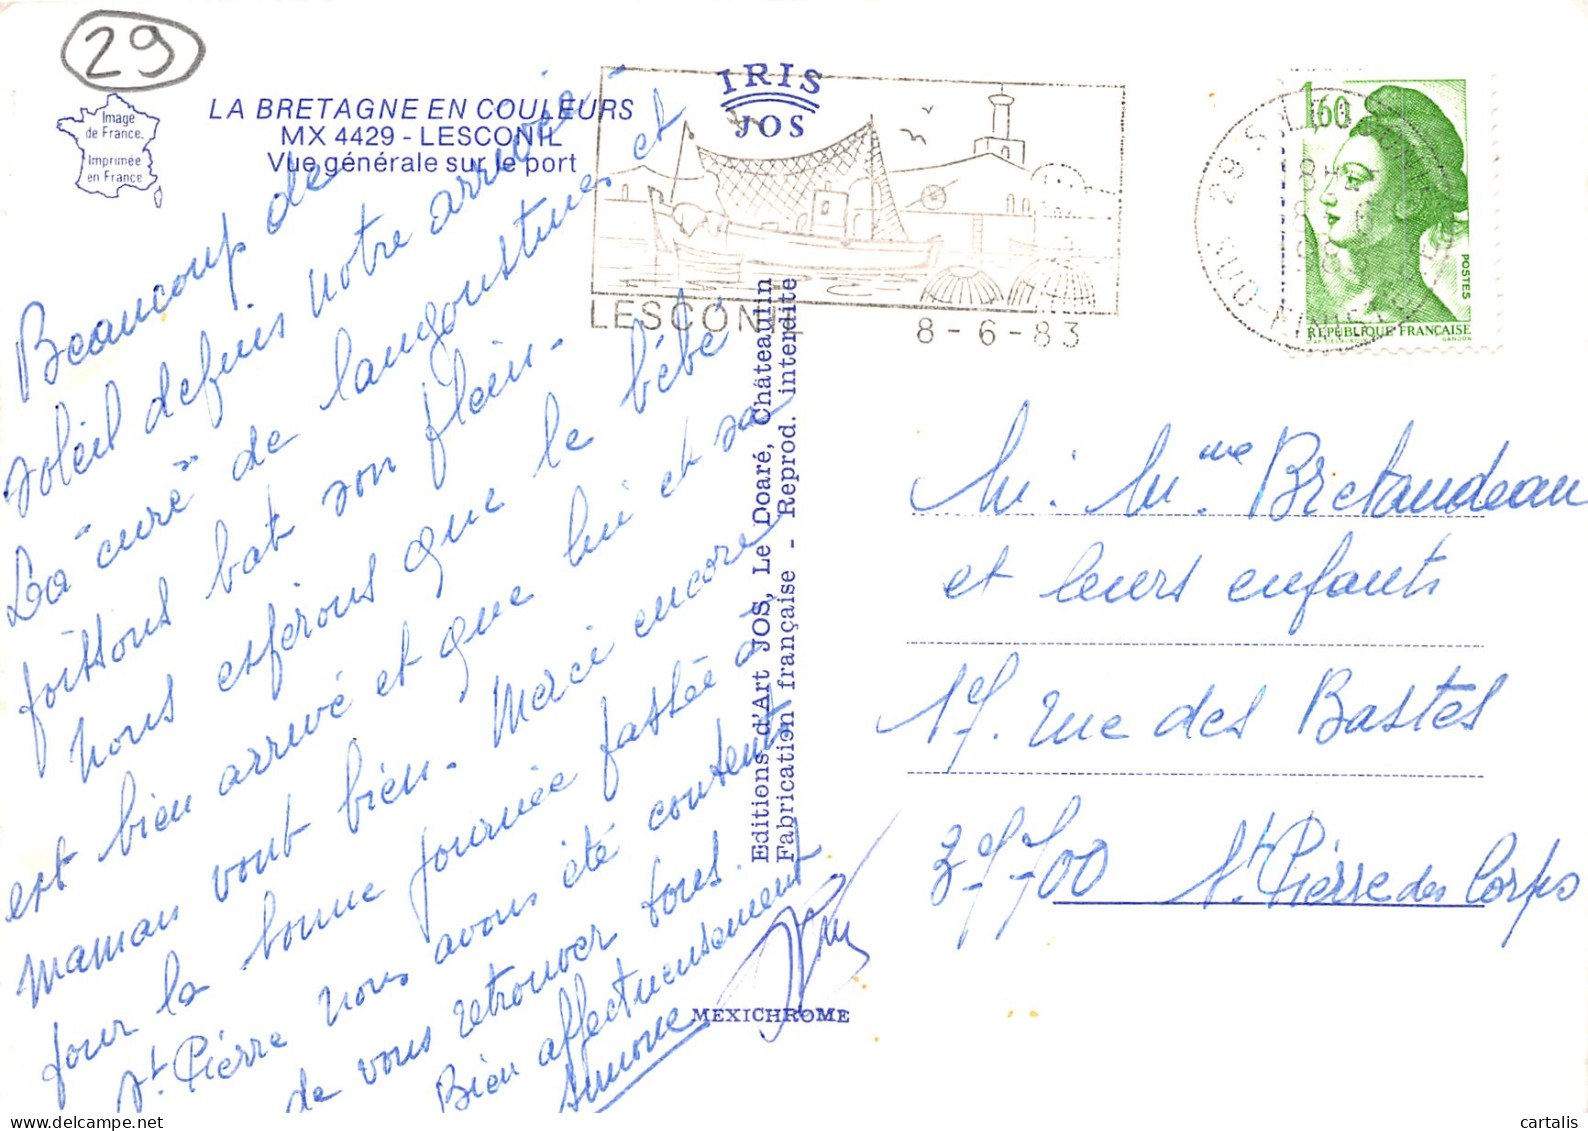 29
Image
de France.
Imprimée
en France
LA BRETAGNE EN COULEURS
MX 4429 - LESCONIL
Vue générale sur le port
IRIS
JOS
LESCONIL
8-6-83
1,60
POSTES
REPUBLIQUE FRANÇAISE
GANDON
Beaucoup de
soleil depuis notre arrivée
La "cure" de langoustines et
poissons bat son plein.
Nous espérons que le bébé
est bien arrivé et que lui et sa
maman vont bien. Merci encore
pour la bonne journée passée à
St. Pierre nous avons été contents
de vous retrouver tous.
Bien affectueusement
Simone
Editions d'Art JOS, Le Doaré, Châteaulin
Fabrication française - Reprod. interdite
MEXICHROME
M. Mme Bretaudeau
et leurs enfants
17. rue des Bastes
37700 St. Pierre des Corps
cartalis
delcampe.net